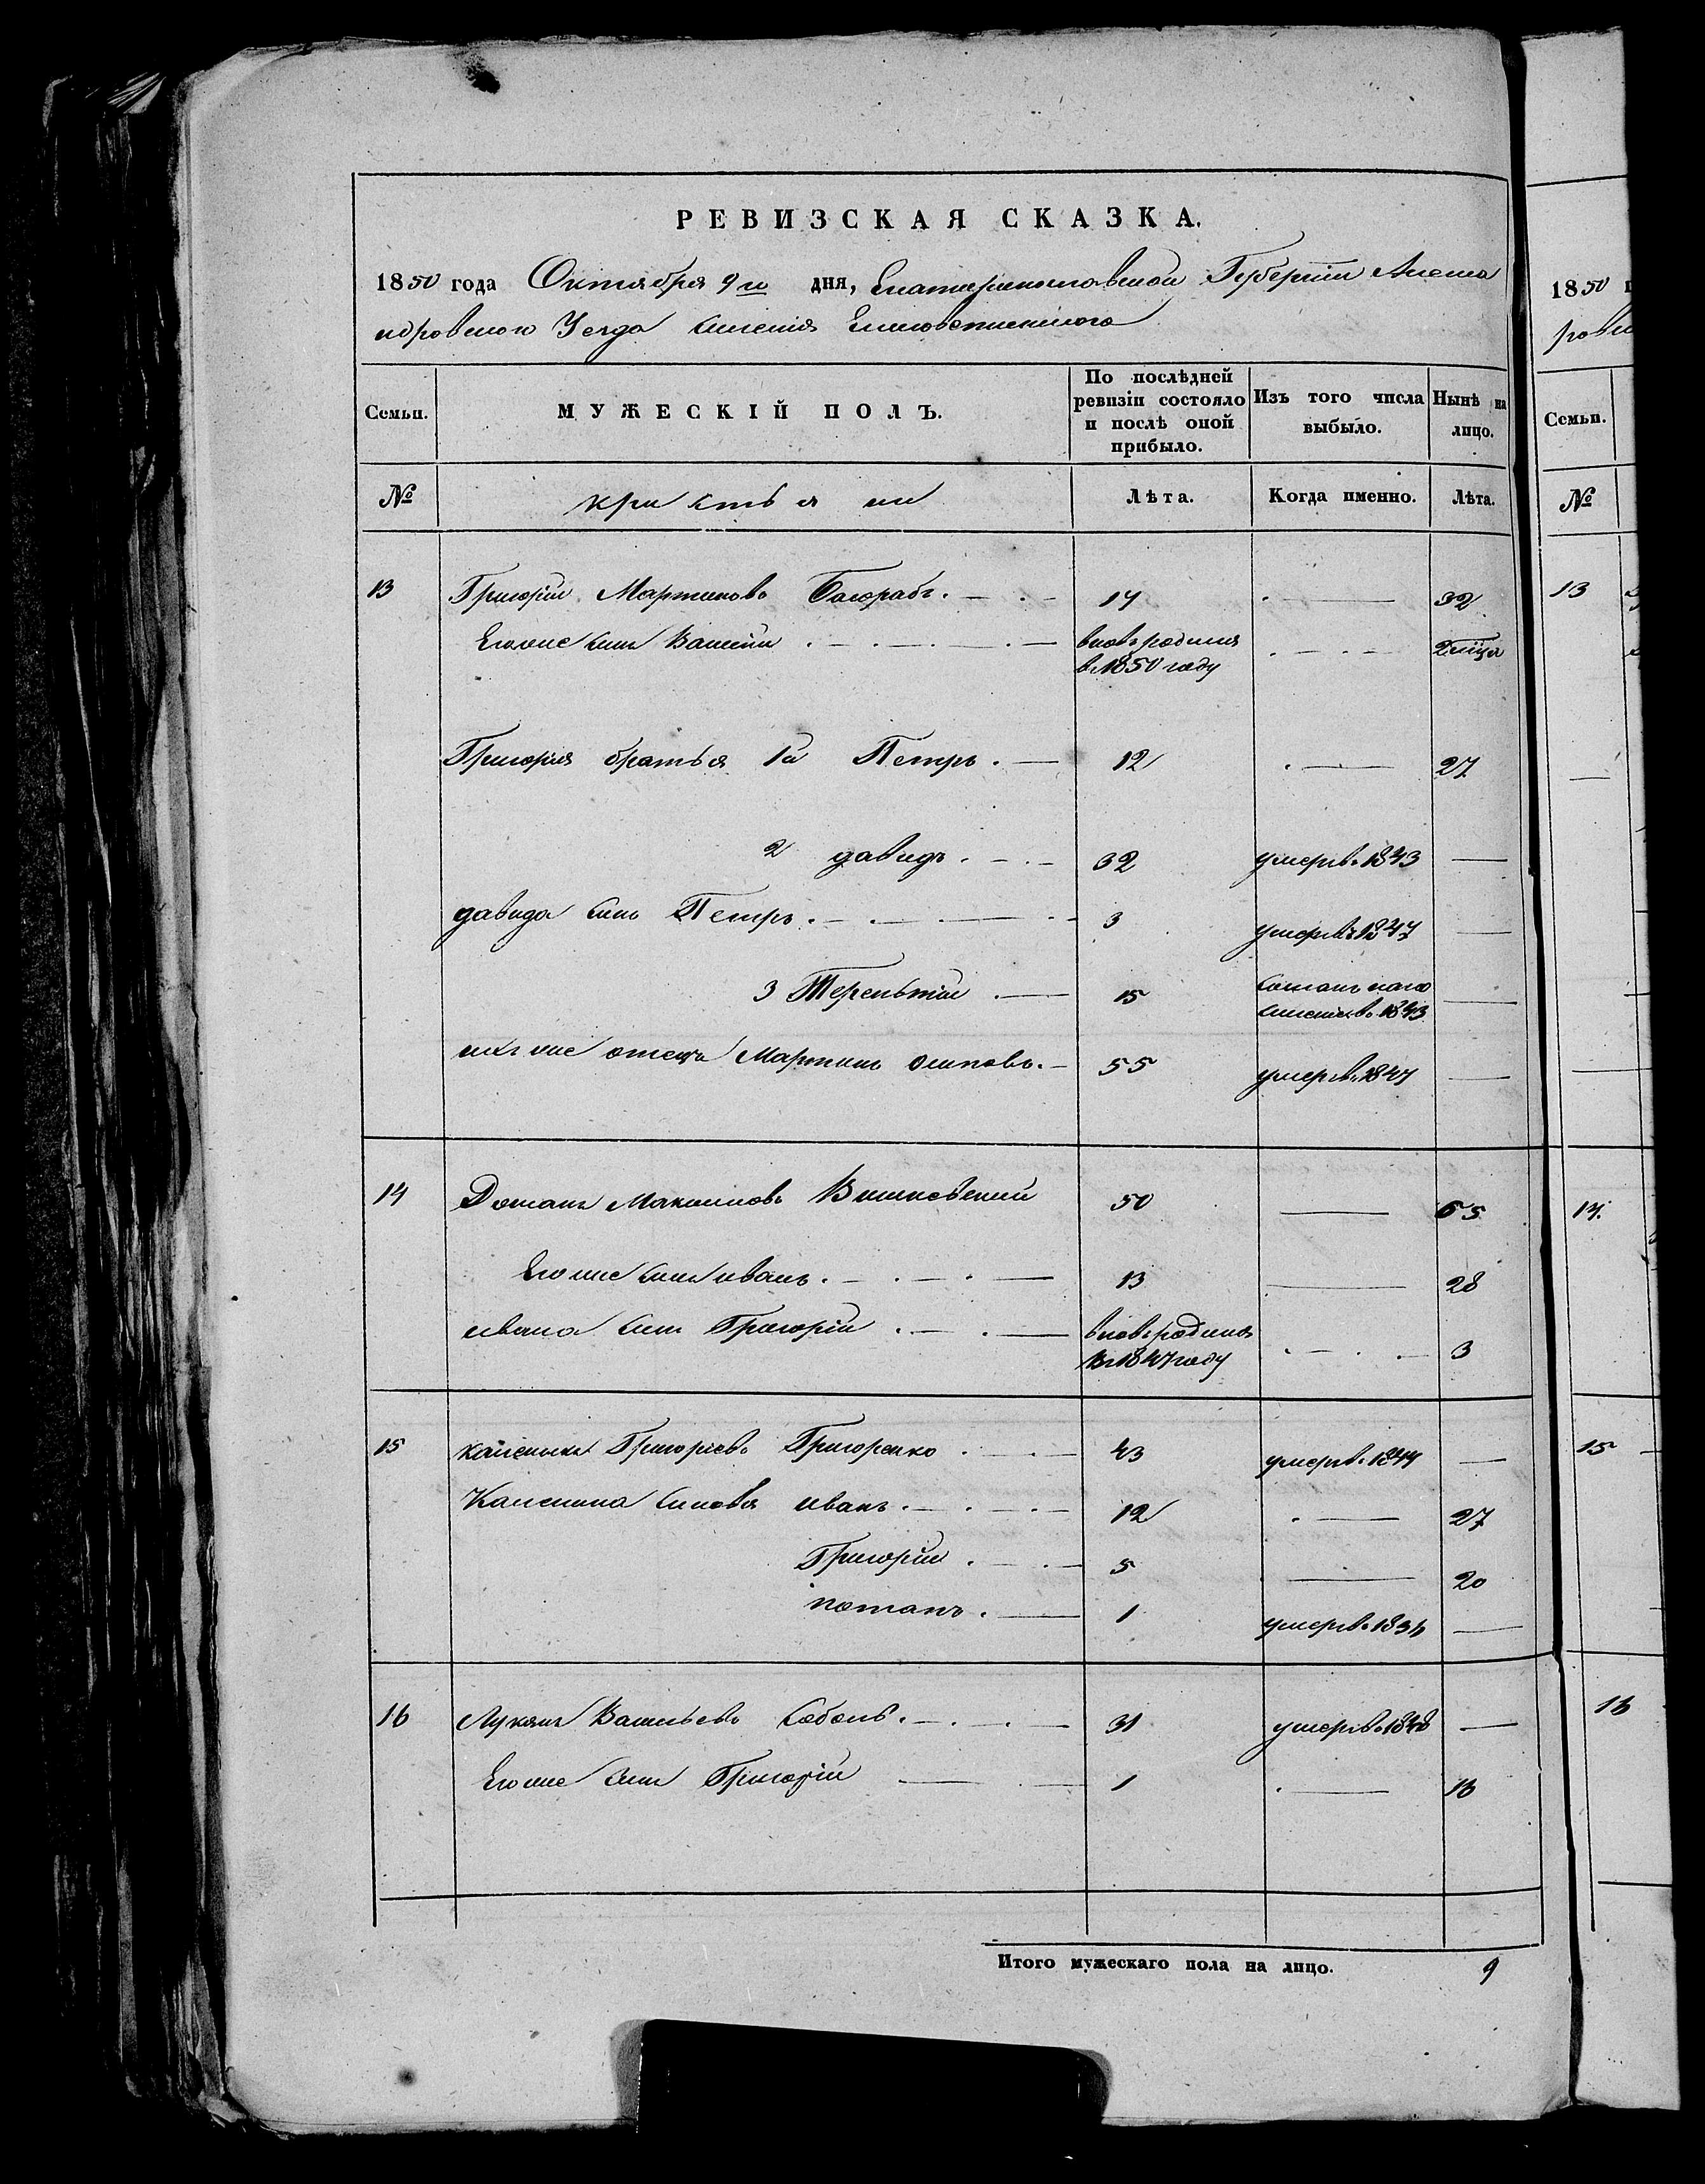 РЕВИЗСКАЯ СКАЗКА.
1850 года Октября 9го дня, Екатеринославской Губернии Алекса
ндровского Уезда имения
Семьи. МУЖЕСКІЙ ПОЛЪ. По послѣдней ревизіи состояло и послѣ оной прибыло. Изъ того числа выбыло. Нынѣ на лицо.
№ крестьяне Лѣта. Когда именно. Лѣта.
13 Григорій Мартиновъ 17 32
Егоже синъ Василій вновь родился в. 1850 году 2 мца
Григорія братья 1й Петръ 12 27
2 давидъ 32 умеръ в. 1843
давида синъ Петръ 3 умеръ въ 1847
3 Терентій 15 1843
ихъ же отецъ Мартинъ осиповъ 55 умеръ в. 1847
14 Максимовъ Вишневский 50 65
Егоже синъ иванъ 13 28
ивана синъ Григорій вновь родился в. 1847 году 3
15 каленикъ Григорьевъ Григоренко 43 умеръ в. 1844
Каленика синовья иванъ 12 27
Григорій 5 20
потапъ 1 умеръ в.
16 Лукянъ Васильевъ Соболь 31 умеръ в. 1848
Егоже синъ Григорій 1 16
Итого мужескаго пола на лицо. 9
1850
Семьи.
№
13
14.
15
16